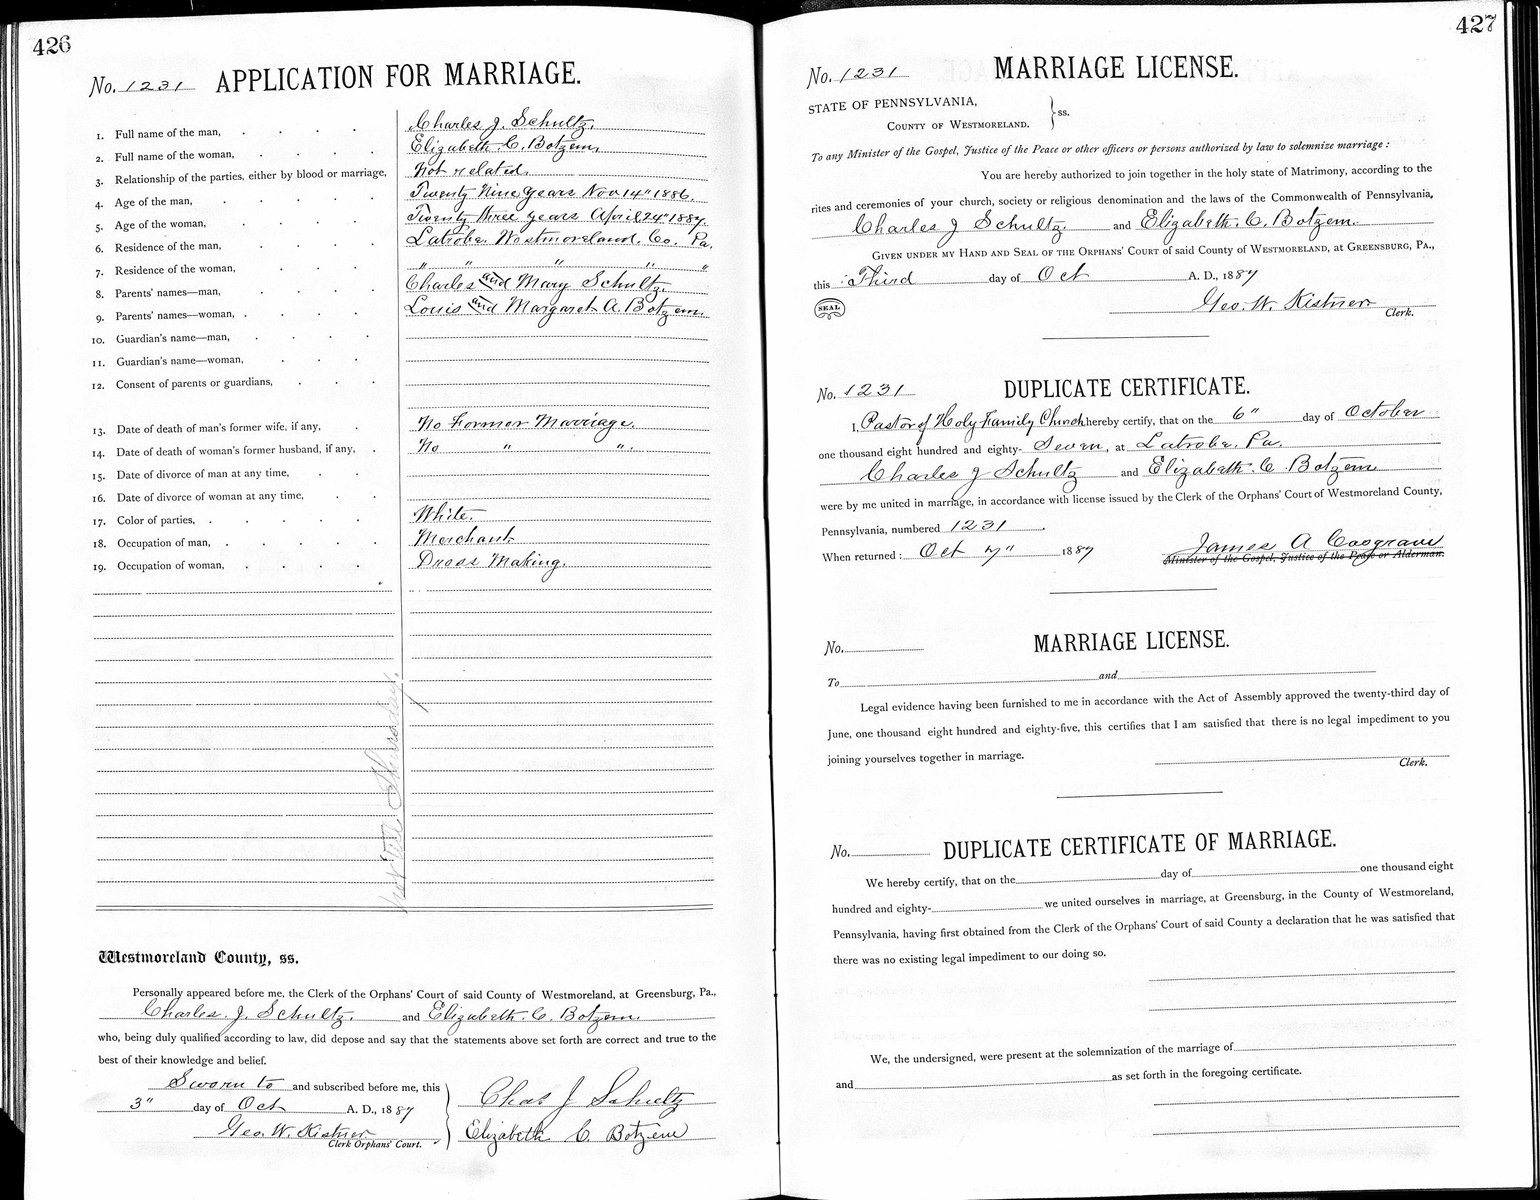 426
No. 1231 APPLICATION FOR MARRIAGE.
1. Full name of the man, Charles J. Schultz.
2. Full name of the woman, Elizabeth. C. Botzem,
3. Relationship of the parties, either by blood or marriage, Not related.
4. Age of the man, Twenty Nine years Nov 14" 1886.
5. Age of the woman, Twenty three years April 24" 1887.
6. Residence of the man, Latrobe. Westmoreland. Co. Pa.
7. Residence of the woman, " " " " "
8. Parents' names—man, Charles and Mary Schultz.
9. Parents' names—woman, Louis and Margaret A. Botzem.
10. Guardian's name—man,
11. Guardian's name—woman,
12. Consent of parents or guardians,
13. Date of death of man's former wife, if any, No Former Marriage.
14. Date of death of woman's former husband, if any, No " "
15. Date of divorce of man at any time,
16. Date of divorce of woman at any time,
17. Color of parties, White.
18. Occupation of man, Merchant
19. Occupation of woman, Dress Making.
Thursday.
Westmoreland County, ss.
Personally appeared before me, the Clerk of the Orphans' Court of said County of Westmoreland, at Greensburg, Pa.,
Charles. J. Schultz. and Elizabeth. C. Botzem.
who, being duly qualified according to law, did depose and say that the statements above set forth are correct and true to the
best of their knowledge and belief.
Sworn to and subscribed before me, this
3" day of Oct A. D., 1887
Geo. W. Kistner
Clerk Orphans' Court.
Chas J Schultz
Elizabeth C. Botzem
427
No. 1231 MARRIAGE LICENSE.
STATE OF PENNSYLVANIA,
COUNTY OF WESTMORELAND. } ss.
To any Minister of the Gospel, Justice of the Peace or other officers or persons authorized by law to solemnize marriage:
You are hereby authorized to join together in the holy state of Matrimony, according to the
rites and ceremonies of your church, society or religious denomination and the laws of the Commonwealth of Pennsylvania,
Charles J Schultz. and Elizabeth. C. Botzem.
GIVEN UNDER MY HAND AND SEAL OF THE ORPHANS' COURT of said County of WESTMORELAND, at GREENSBURG, PA.,
this Third day of Oct A. D., 1887
SEAL
Geo. W. Kistner
Clerk.
No. 1231 DUPLICATE CERTIFICATE.
I, Pastor of Holy Family Church hereby certify, that on the 6" day of October
one thousand eight hundred and eighty- Seven, at Latrobe. Pa
Charles J Schultz and Elizabeth. C. Botzem
were by me united in marriage, in accordance with license issued by the Clerk of the Orphans' Court of Westmoreland County,
Pennsylvania, numbered 1231.
When returned: Oct 7" 1887
James A Cosgrave
Minister of the Gospel, Justice of the Peace or Alderman.
No. MARRIAGE LICENSE.
To and
Legal evidence having been furnished to me in accordance with the Act of Assembly approved the twenty-third day of
June, one thousand eight hundred and eighty-five, this certifies that I am satisfied that there is no legal impediment to you
joining yourselves together in marriage.
Clerk.
No. DUPLICATE CERTIFICATE OF MARRIAGE.
We hereby certify, that on the day of one thousand eight
hundred and eighty- we united ourselves in marriage, at Greensburg, in the County of Westmoreland,
Pennsylvania, having first obtained from the Clerk of the Orphans' Court of said County a declaration that he was satisfied that
there was no existing legal impediment to our doing so.
We, the undersigned, were present at the solemnization of the marriage of
and as set forth in the foregoing certificate.